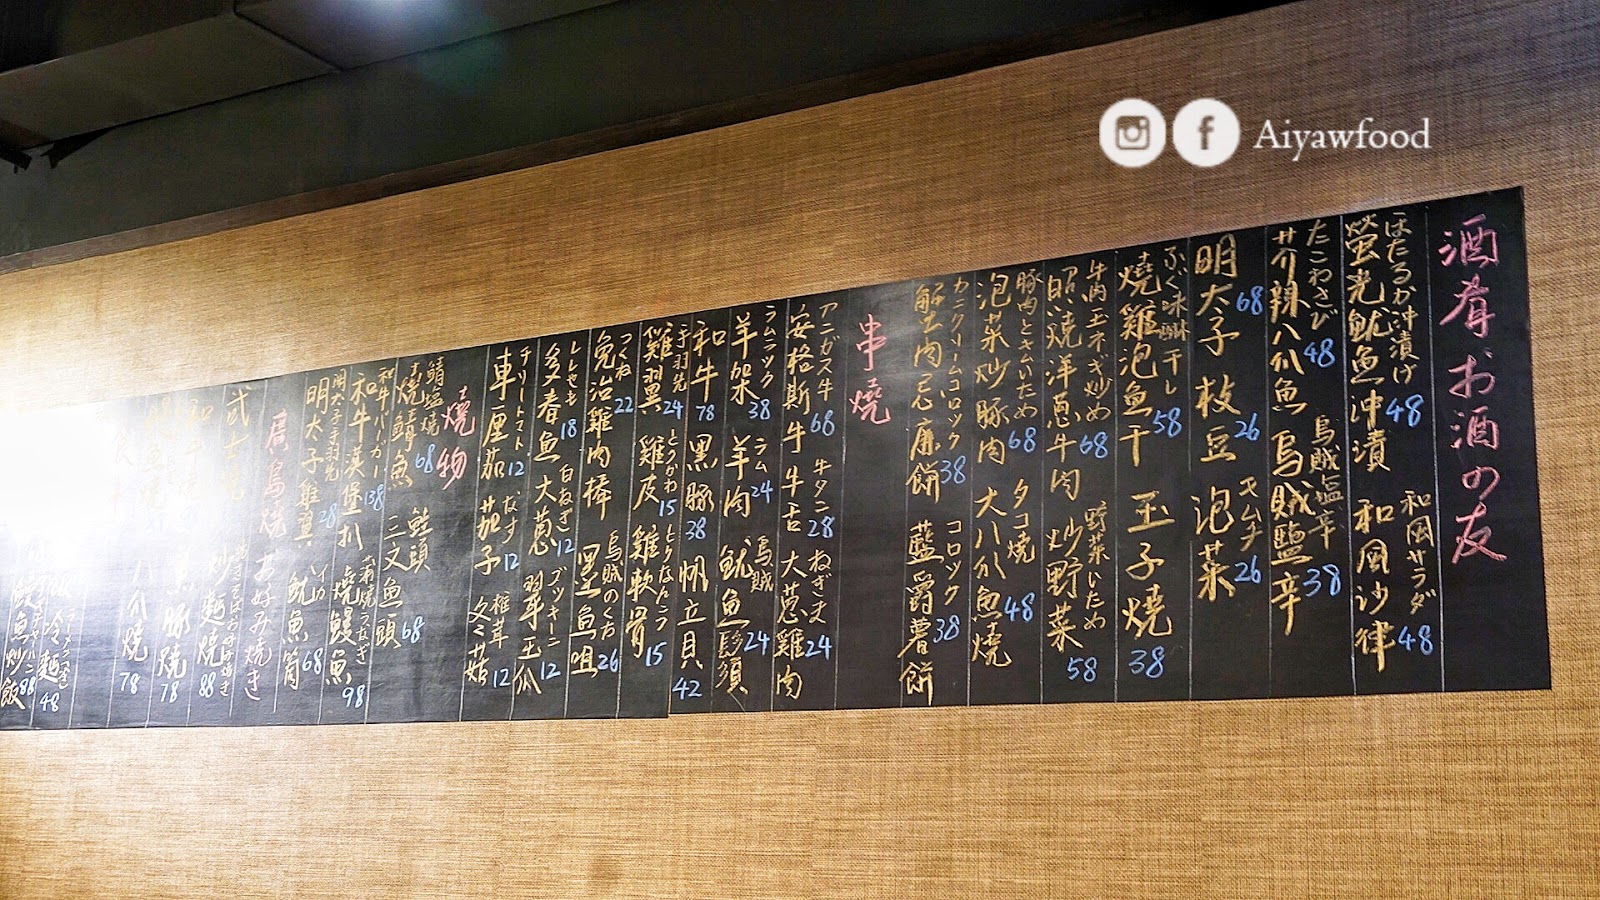 Aiyawfood
酒肴お酒の友
ほたるか沖漬け 和風サラダ
螢光魷魚沖漬 48 和風沙律 48
たこわさび 烏賊塩辛
芥辣八爪魚 48 烏賊鹽辛 38
キムチ
明太子 68 枝豆 26 泡菜 26
ふぐ味醂干し
燒雞泡魚干 58 玉子燒 38
牛肉玉ネギ炒め 野菜いため
日式燒洋蔥牛肉 68 炒野菜 58
豚肉とキムいため タコ焼
泡菜炒豚肉 68 大八爪魚燒 48
カニクリームコロッケ コロッケ
蟹肉忌廉餅 38 薯餅 38
串燒
アニガス牛 牛タン ねぎま
安格斯牛 68 牛舌 28 大蔥雞肉 24
ラムラック ラム 烏賊
羊架 38 羊肉 24 魷魚鬚 24
和牛 78 黑豚 38 帆立貝 42
手羽先 とりかわ とりなんこつ
雞翼 24 雞皮 15 雞軟骨 15
つくね 烏賊のくち
免治雞肉棒 22 墨魚咀 26
ししゃも 白ねぎ ズッキーニ
多春魚 18 大蔥 12 翠玉瓜 12
チリートマト なす 椎茸
車厘茄 12 茄子 12 冬菇 12
燒物
鯖塩焼 鮭頭
燒鯖魚 68 三文魚頭 68
和牛バーガー 蒲焼うなぎ
和牛漢堡扒 138 燒鰻魚 98
明太子手羽先 イカ
明太子雞翼 28 魷魚筒 68
廣島燒 お好み焼き
武士 炒麵燒 88
豚燒 78
八爪燒 78
冷麵 48
鰻魚炒飯 88